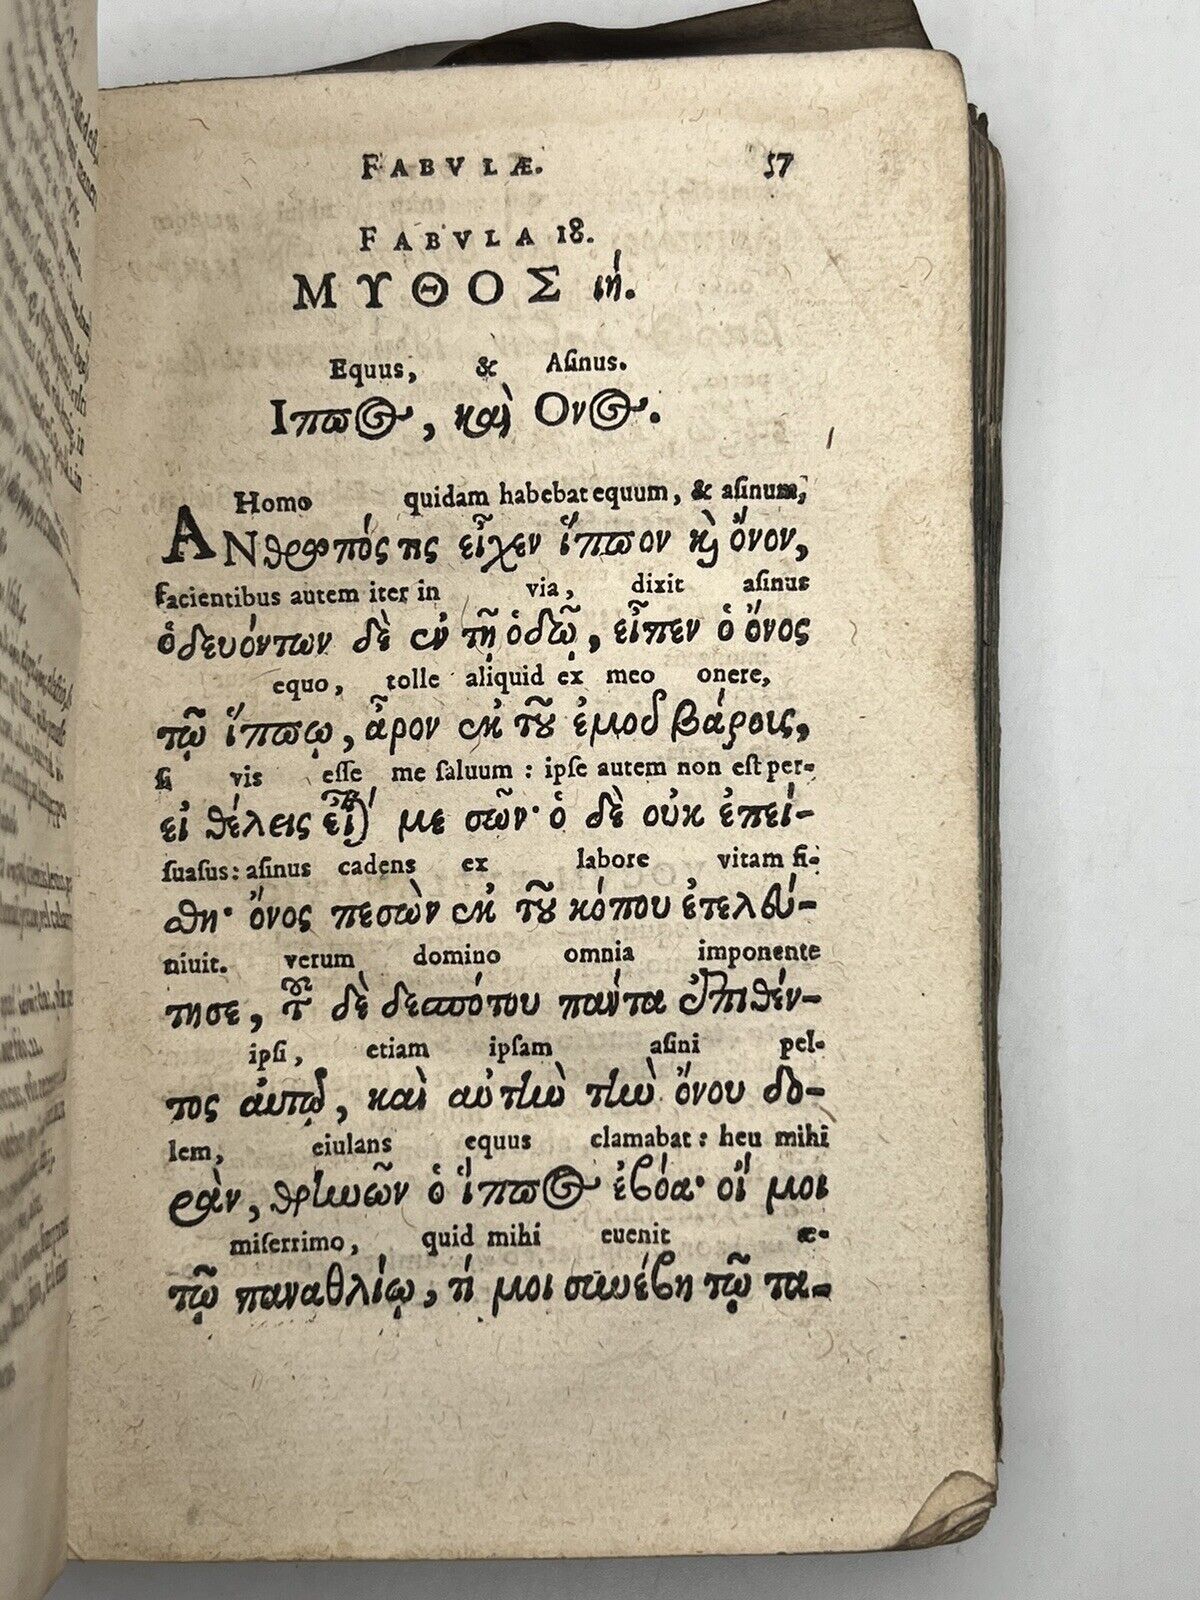 FABVLÆ. 57
FABVLA 18.
ΜΥΘΟΣ ιή.
Equus, & Aſinus.
Ιππος, καὶ Ονος.
Homo quidam habebat equum, & aſinum,
ΑΝθρωπός τις εἶχεν ἵππον καὶ ὄνον,
facientibus autem iter in via, dixit aſinus
ὁδευόντων δὲ ἐν τῇ ὁδῷ, εἶπεν ὁ ὄνος
equo, tolle aliquid ex meo onere,
τῷ ἵππῳ, ἆρον ἐκ τοῦ ἐμοῦ βάρους,
ſi vis eſſe me ſaluum: ipſe autem non eſt per-
εἰ θέλεις εἶναί με σῶν· ὁ δὲ οὐκ ἐπεί-
ſuaſus: aſinus cadens ex labore vitam fi-
σθη· ὄνος πεσὼν ἐκ τοῦ κόπου ἐτελεύ-
niuit. verum domino omnia imponente
τησε, τοῦ δὲ δεσπότου πάντα ἐπιθέν-
ipſi, etiam ipſam aſini pel-
τος αὐτῷ, καὶ αὐτὴν τὴν ὄνου δο-
lem, eiulans equus clamabat: heu mihi
ρὰν, θρηνῶν ὁ ἵππος ἐβόα· οἴ μοι
miſerrimo, quid mihi euenit æ-
τῷ παναθλίῳ, τί μοι συνέβη τῷ τα-